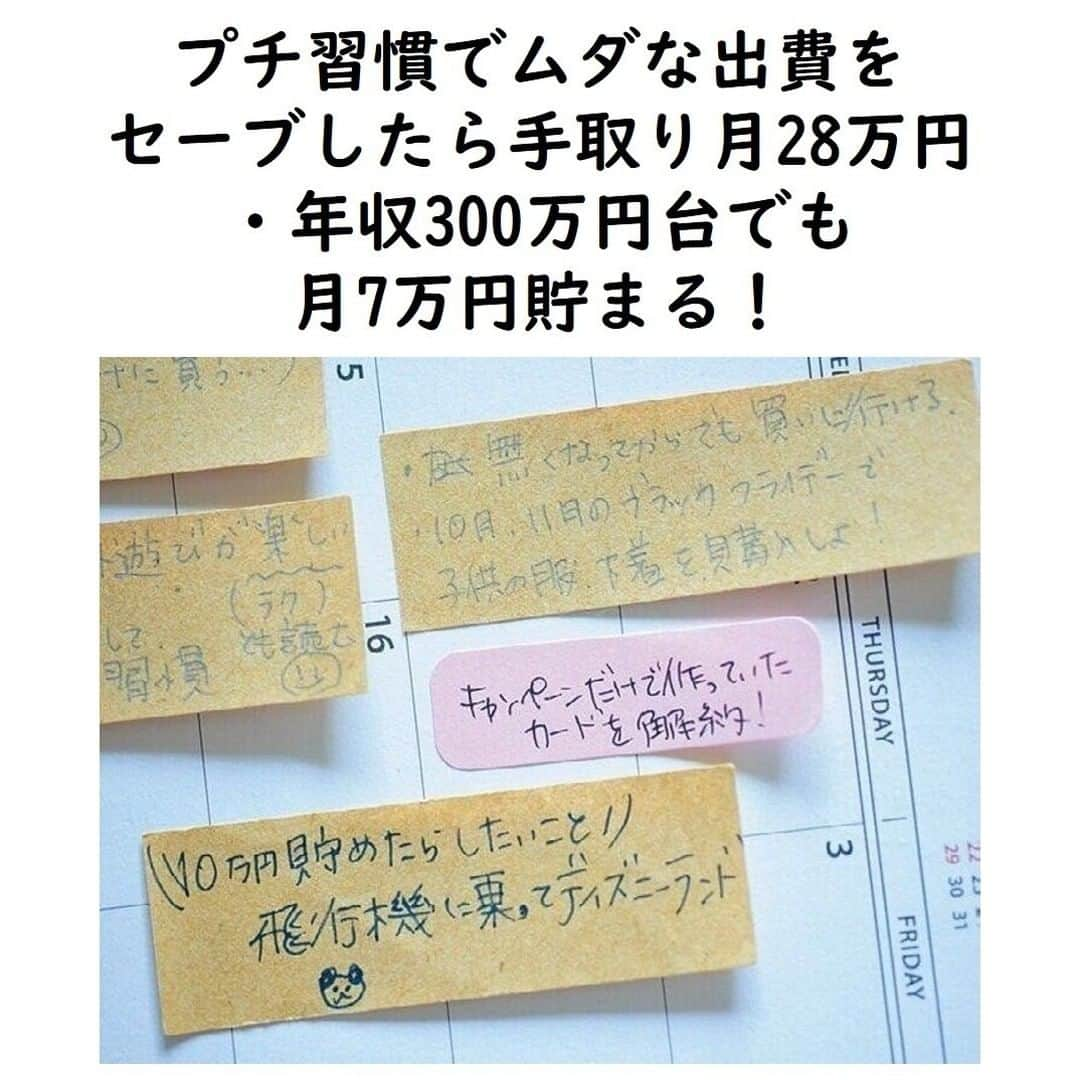 プチ習慣でムダな出費を
セーブしたら手取り月28万円
・年収300万円台でも
月7万円貯まる！
けに買う…)
15
・無くなってからでも買いに行ける.
・10月、11月のブラックフライデーで
子供の服、下着を買募めしよ！
遊びが楽しい
(ラク)
して. とも読む
習慣
16
THURSDAY
キャンペーンだけで作っていた
カードを解約！
\\10万円貯めたらしたいこと//
飛行機に乗ってディズニーランド
3
FRIDAY
22
29
30
31